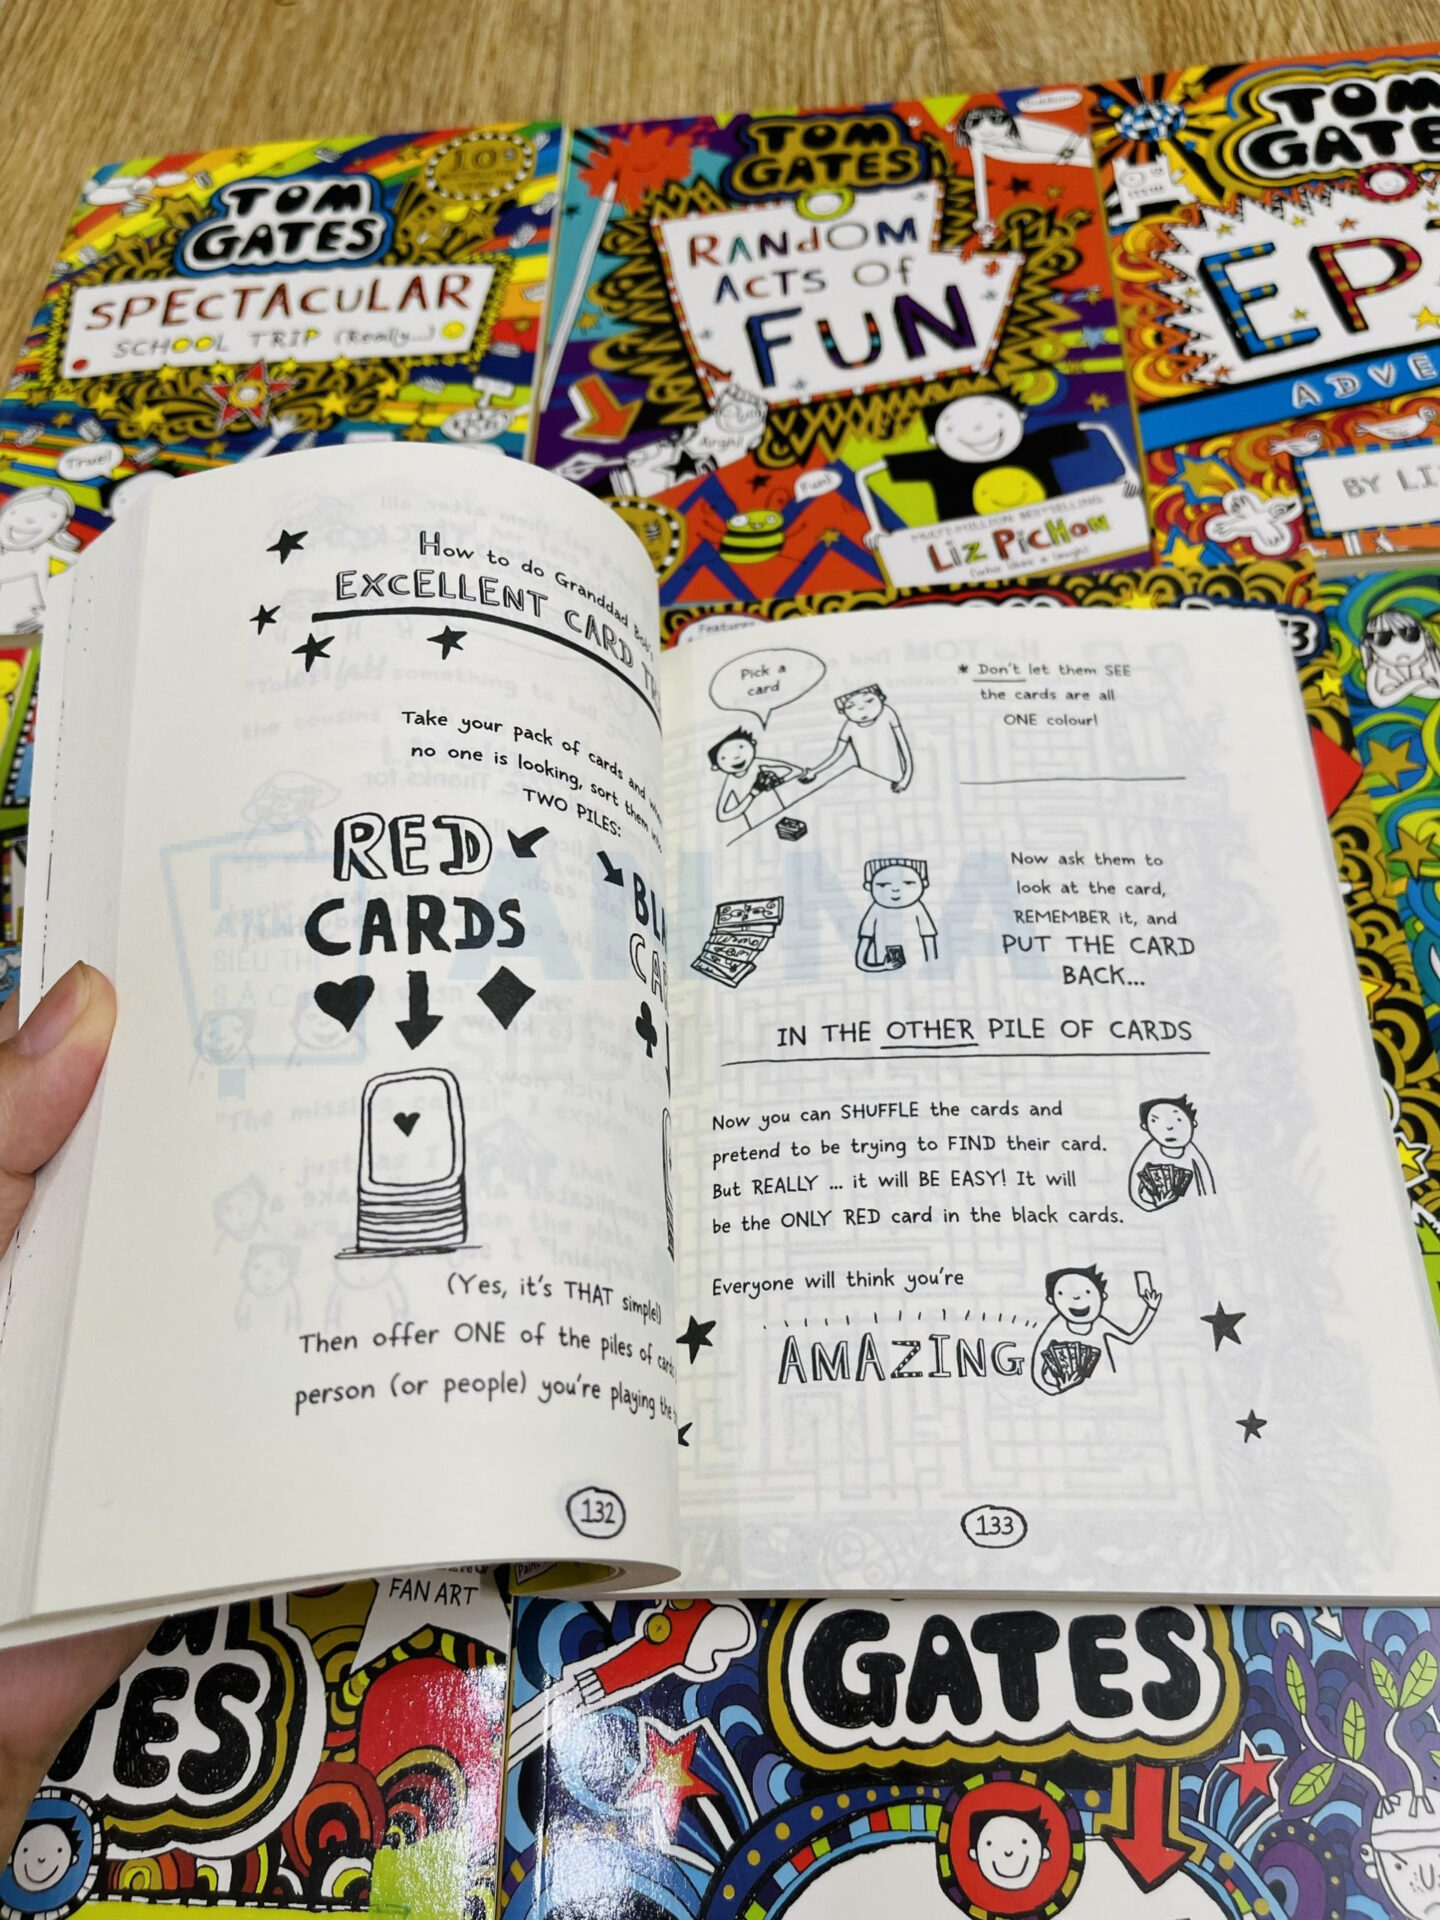 TOM
GATES
SPECTACULAR
SCHOOL TRIP (Really...)
True!
TOM
GATES
RANdOM
ACTS Of
FUN
Arghi!
Fun!
MULTI-MILLION BESTSELLING
Liz PicHon
TOM
GATE
EP
ADVE
BY LI
How to do Granddad Bob's
EXCELLENT CARD
Take your pack of cards and when
no one is looking, sort them into
TWO PILES:
RED
CARDS
(Yes, it's THAT simple!)
Then offer ONE of the piles of cards
person (or people) you're playing the
132
Pick a
card
* Don't let them SEE
the cards are all
ONE colour!
Now ask them to
look at the card,
REMEMBER it, and
PUT THE CARD
BACK...
IN THE OTHER PILE OF CARDS
Now you can SHUFFLE the cards and
pretend to be trying to FIND their card.
But REALLY ... it will BE EASY! It will
be the ONLY RED card in the black cards.
Everyone will think you're
AMAZING
133
FAN ART
GATES